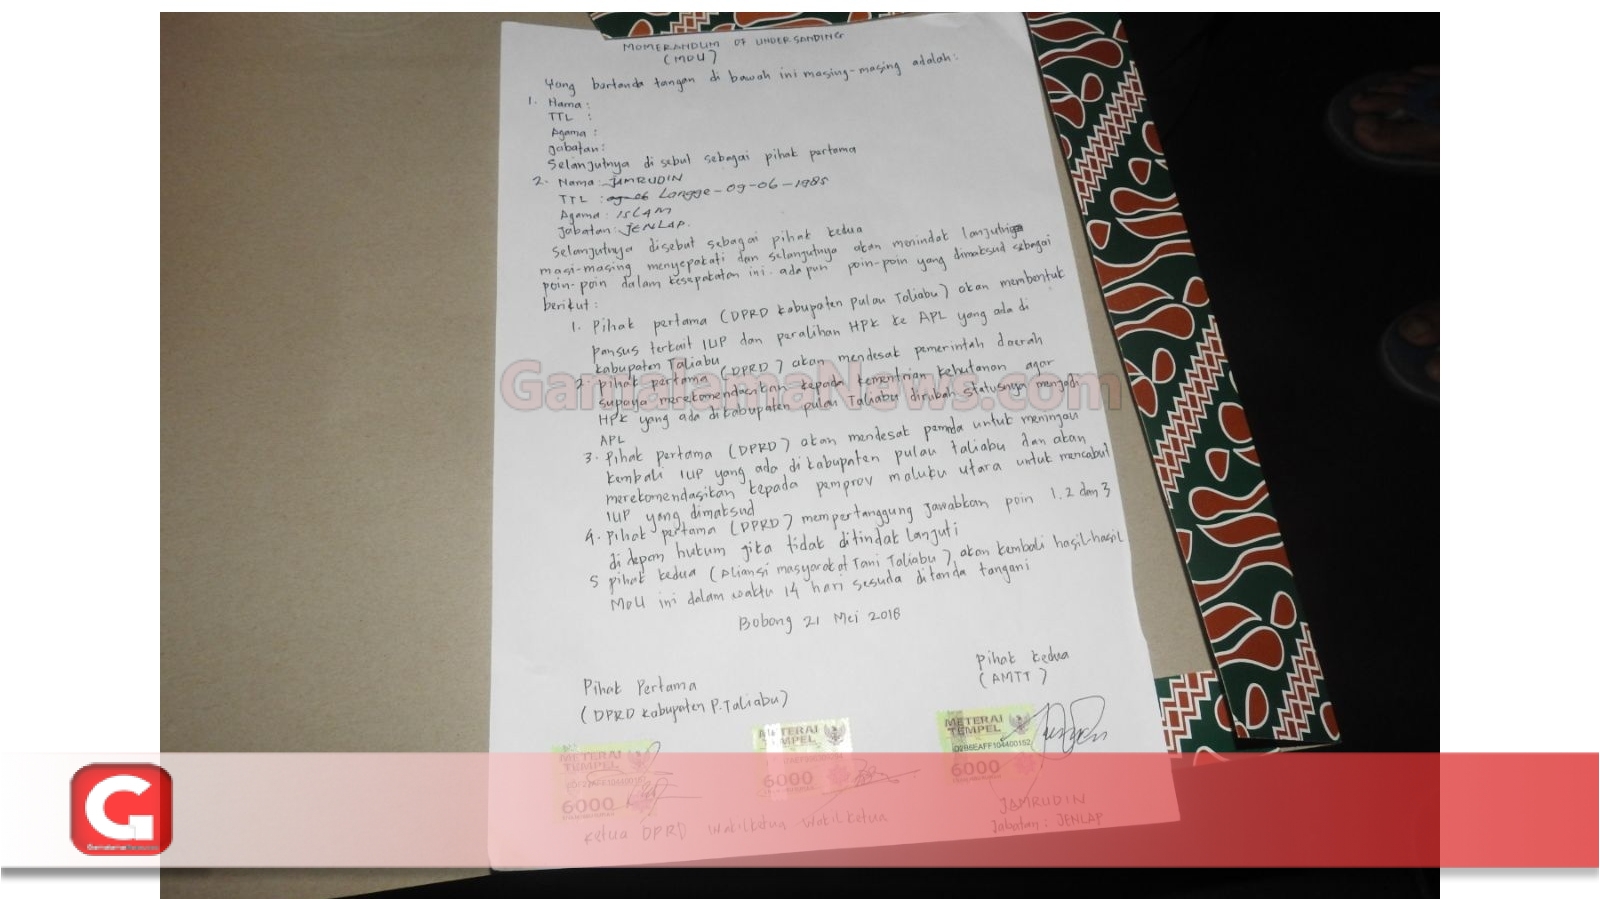 MOMERANDUM OF UNDERSANDING
(MOU)
Yang bertanda tangan di bawah ini masing-masing adalah:
1. Nama :
TTL :
Agama :
Jabatan:
Selanjutnya di sebut sebagai pihak pertama
2. Nama: JAMRUDIN
TTL : Langge-09-06-1985
Agama: ISLAM
Jabatan: JENLAP.
Selanjutnya disebut sebagai pihak kedua
masi-masing menyepakati dan selanjutnya akan menindak lanjutnya
poin-poin dalam kesepakatan ini. adapun poin-poin yang dimaksud sebagai
berikut :
1. Pihak pertama (DPRD Kabupaten pulau Taliabu) akan membentuk
pansus terkait IUP dan peralihan HPK ke APL yang ada di
kabupaten Taliabu
2. pihak pertama (DPRD) akan mendesak pemerintah daerah
supaya merekomendasikan kepada kementrian kehutanan agar
HPK yang ada di kabupaten pulau Taliabu dirubah statusnya menjadi
APL
3. Pihak pertama (DPRD) akan mendesak pemda untuk meninjau
kembali IUP yang ada di kabupaten pulau taliabu dan akan
merekomendasikan kepada pemprov maluku utara untuk mencabut
IUP yang dimaksud
4. Pihak pertama (DPRD) mempertanggung jawabkan poin 1.2 dan 3
di depan hukum jika tidak ditindak lanjuti
5 pihak kedua (Aliansi masyarakat Tani Taliabu) akan kembali hasil-hasil
MoU ini dalam waktu 14 hari sesuda di tanda tangani
Bobong 21 Mei 2018
Pihak kedua
(AMTT)
Pihak Pertama
(DPRD Kabupaten P.Taliabu)
METERAI
TEMPEL
6000
METERAI
TEMPEL
6000
METERAI
TEMPEL
6000
Ketua DPRD Wakil ketua Wakil ketua
JAMRUDIN
Jabatan : JENLAP
GamalamaNews.com
G